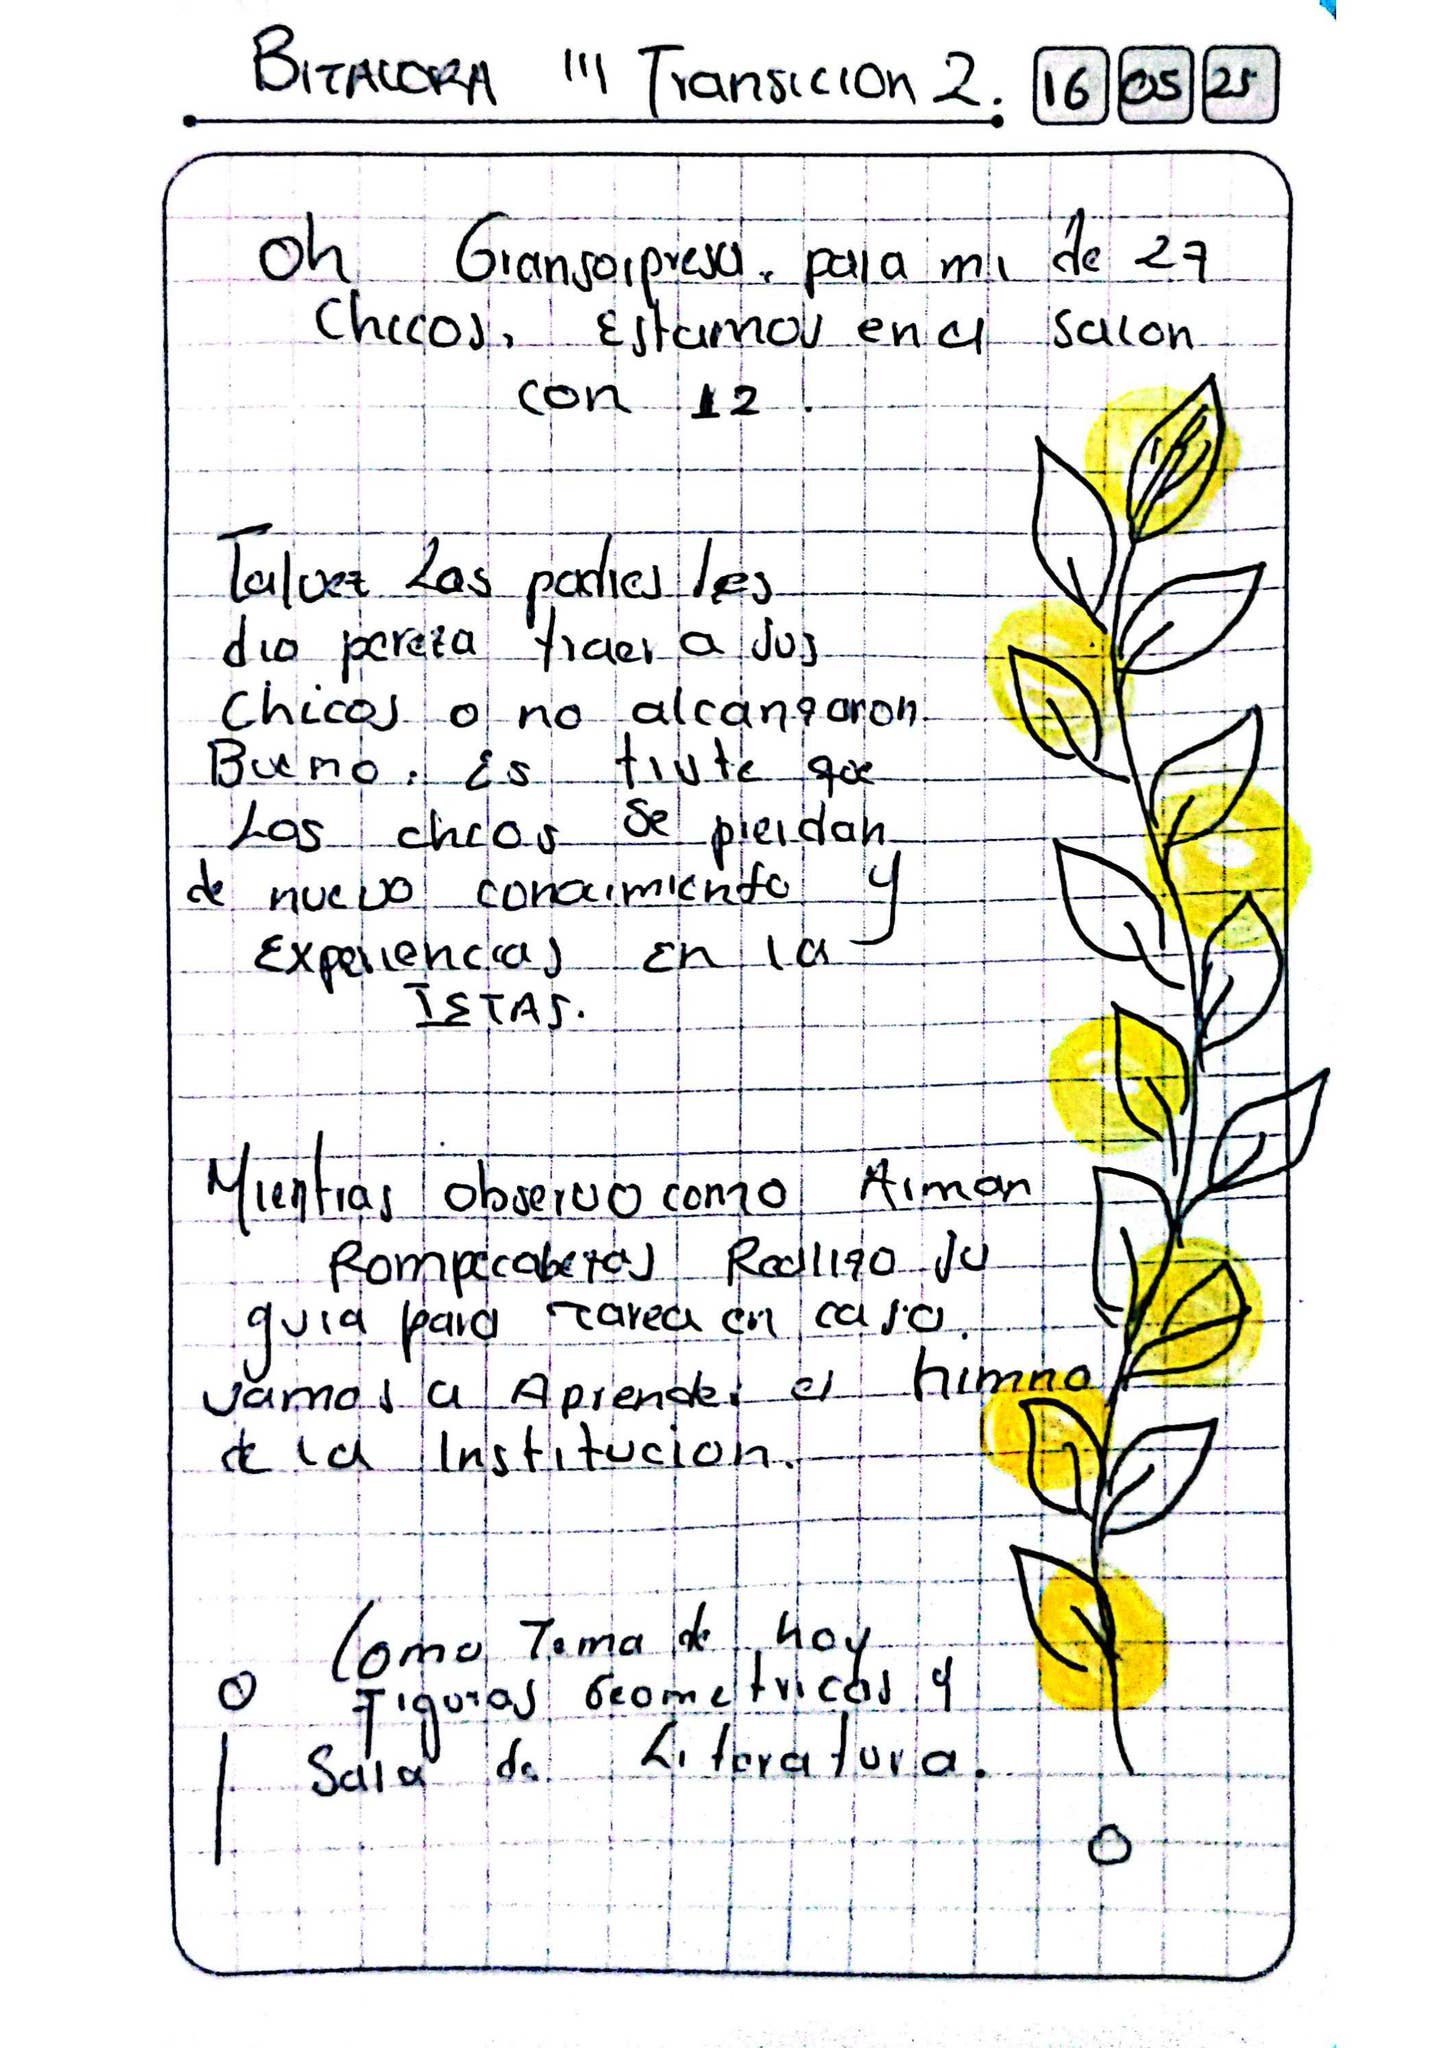 BITACORA III Transicion 2. 16 05 25
Oh Gransorpresa. para mi de 27
Chicos. Estamos en el salon
con 12.
Talvez Los padres les
dio pereza traer a sus
chicos o no alcanzaron.
Bueno. Es triste que
Los chcos se pierdan
de nuevo conocimiento y
Experiencias en la
IETAS.
Mientras observo como Arman
Rompecabezas Realizo su
guia para Tarea en casa.
vamos a Aprender el himno
de la Institucion.
Como Tema de hoy
Figuras Geometricas y
Sala de Literatura.